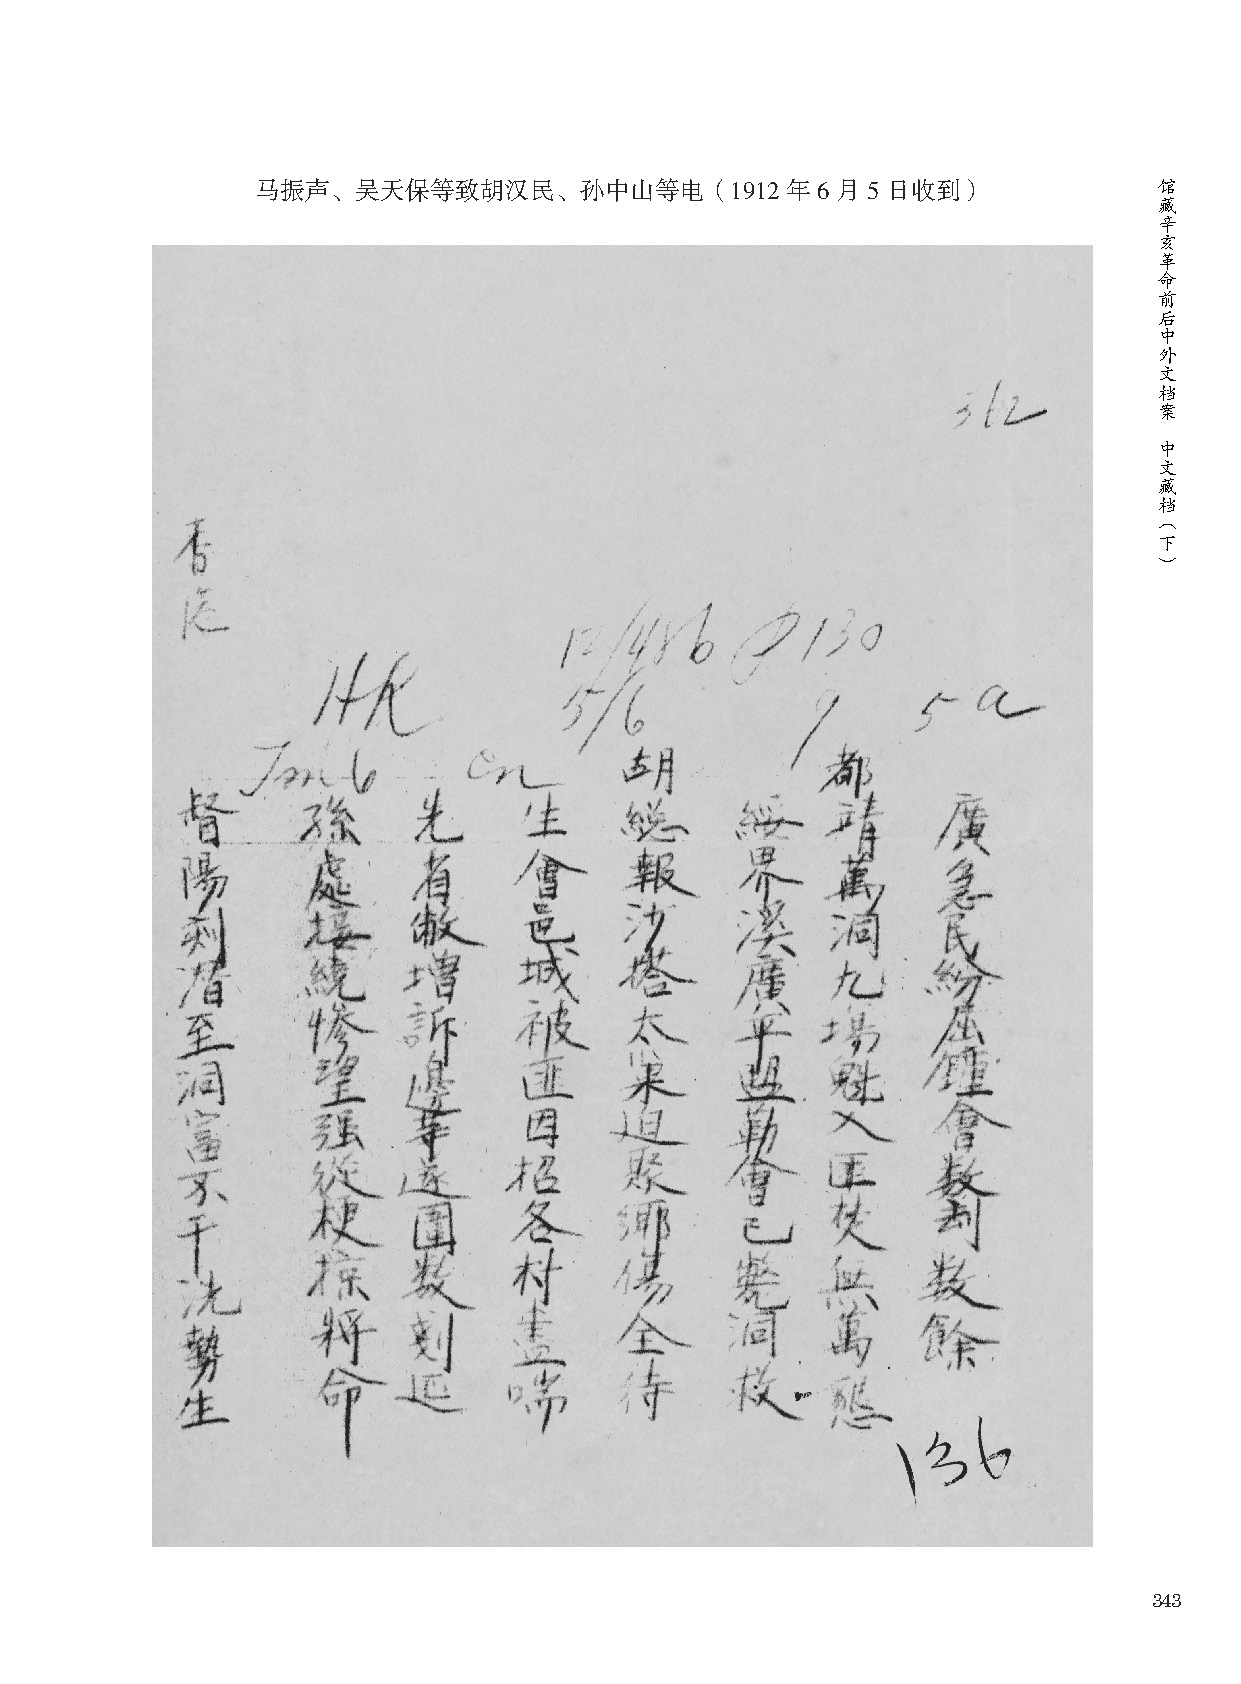 马振声、吴天保等致胡汉民、孙中山等电（1912 年 6 月 5 日收到）
馆藏辛亥革命前后中外文档案 中文藏档（下）
362
香港
12/486 130
HK 5/6 9 5 a
胡 都
督孫先生總綏靖廣
陽處省會報界萬急
刹接敝邑沙溪洞民
潛統增城搭廣九紛
至慘訴被太平場屈
洞望邊匪巢盟魁鍾
富強莘因迫勦入會
不從遂招聚會匪数
干梗圍各鄉已刦
洗掠数村傷斃無数
勢將剋盡全洞萬餘
生命延喘待救懇
136
343